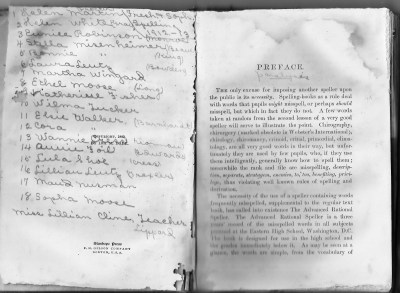 1 Helen Martin, Fresh + Soph
2 Helen Whit
3 Eunice Robinson 1912-13
4 Stella Misenheimer
5 Bonnie (King)
6 Laura Lentz
7 Martha Winyard
8 Ethel Moose (Long)
9 Katherine Fisher
10 Wilma Tucker
11 Elsie Walker,
12 Cora
13 W
14 Annie
15 Lula Shoe
16 Lillian Lentz
17 Maud Nusman
18 Sopha Moose
Miss Lillian Cline, Teacher
Lippard
COPYRIGHT, 1902,
Stanhope Press
F. H. GILSON COMPANY
BOSTON, U.S.A.
PREFACE.
THE only excuse for imposing another speller upon
the public is its severity. Spelling-books as a rule deal
with words that pupils might misspell, or perhaps should
misspell, but which in fact they do not. A few words
taken at random from the second lesson of a very good
speller will serve to illustrate the point. Chirography,
chirurgery (marked obsolete in Webster's International),
chronology, demonology, eternal, retral, primordial, climatology,
are all very good words in their way, but unfortunately
they are used by few pupils, who, if they
use them intelligently, generally know how to spell them;
meanwhile the rank and file are misspelling, description,
separate, strategem, omission, to, too, benefiting, privilege,
thus violating well known rules of spelling and
derivation.
The necessity of the use of a speller containing words
frequently misspelled, supplemental to the regular text
book, has called into existence The Advanced Rational
Speller. The Advanced Rational Speller is a three
years' record of the misspelled words in all subjects
pursued at the Eastern High School, Washington, D.C.
The book is designed for use in the high school and
the grades immediately below it. As may be seen at a
glance, the words are simple, from the vocabulary of